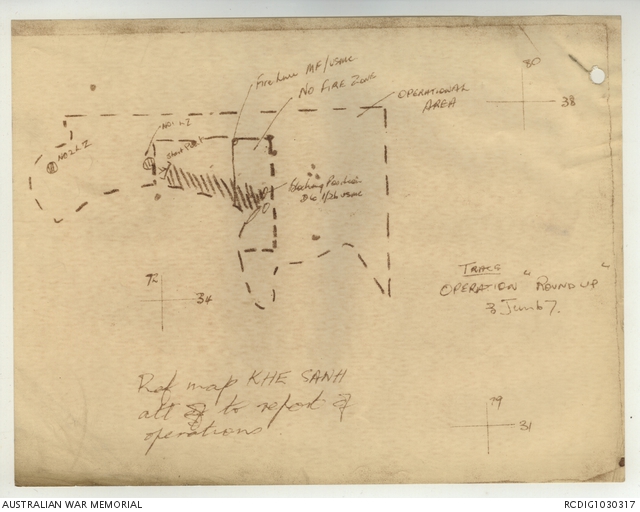 Fire Line MF/USMC
NO FIRE ZONE
OPERATIONAL
AREA
80
38
NO2 LZ
NO1 LZ
Start Point
Blocking Position
D Co 1/26 USMC
TRACE
OPERATION "ROUND UP"
3 Jun 67.
72
34
Ref map KHE SANH
att to report of
operations.
79
31
AUSTRALIAN WAR MEMORIAL
RCDIG1030317